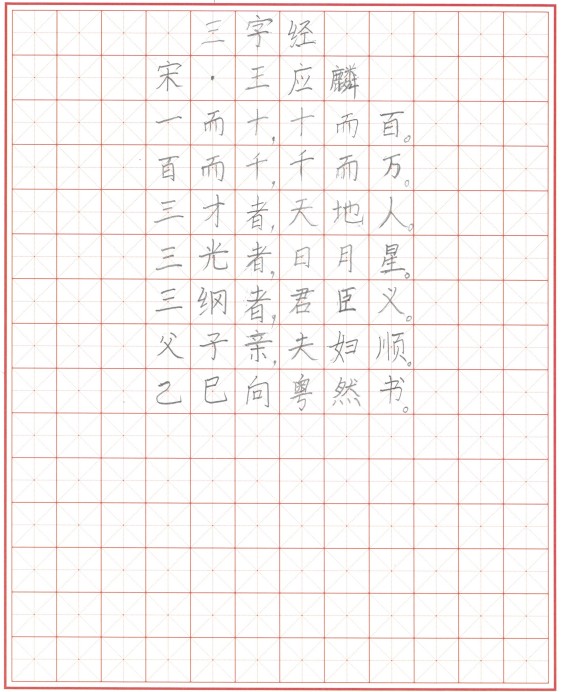 三字经
宋·王应麟
一而十,十而百。
百而千,千而万。
三才者,天地人。
三光者,日月星。
三纲者,君臣义。
父子亲,夫妇顺。
乙巳向粤然书。